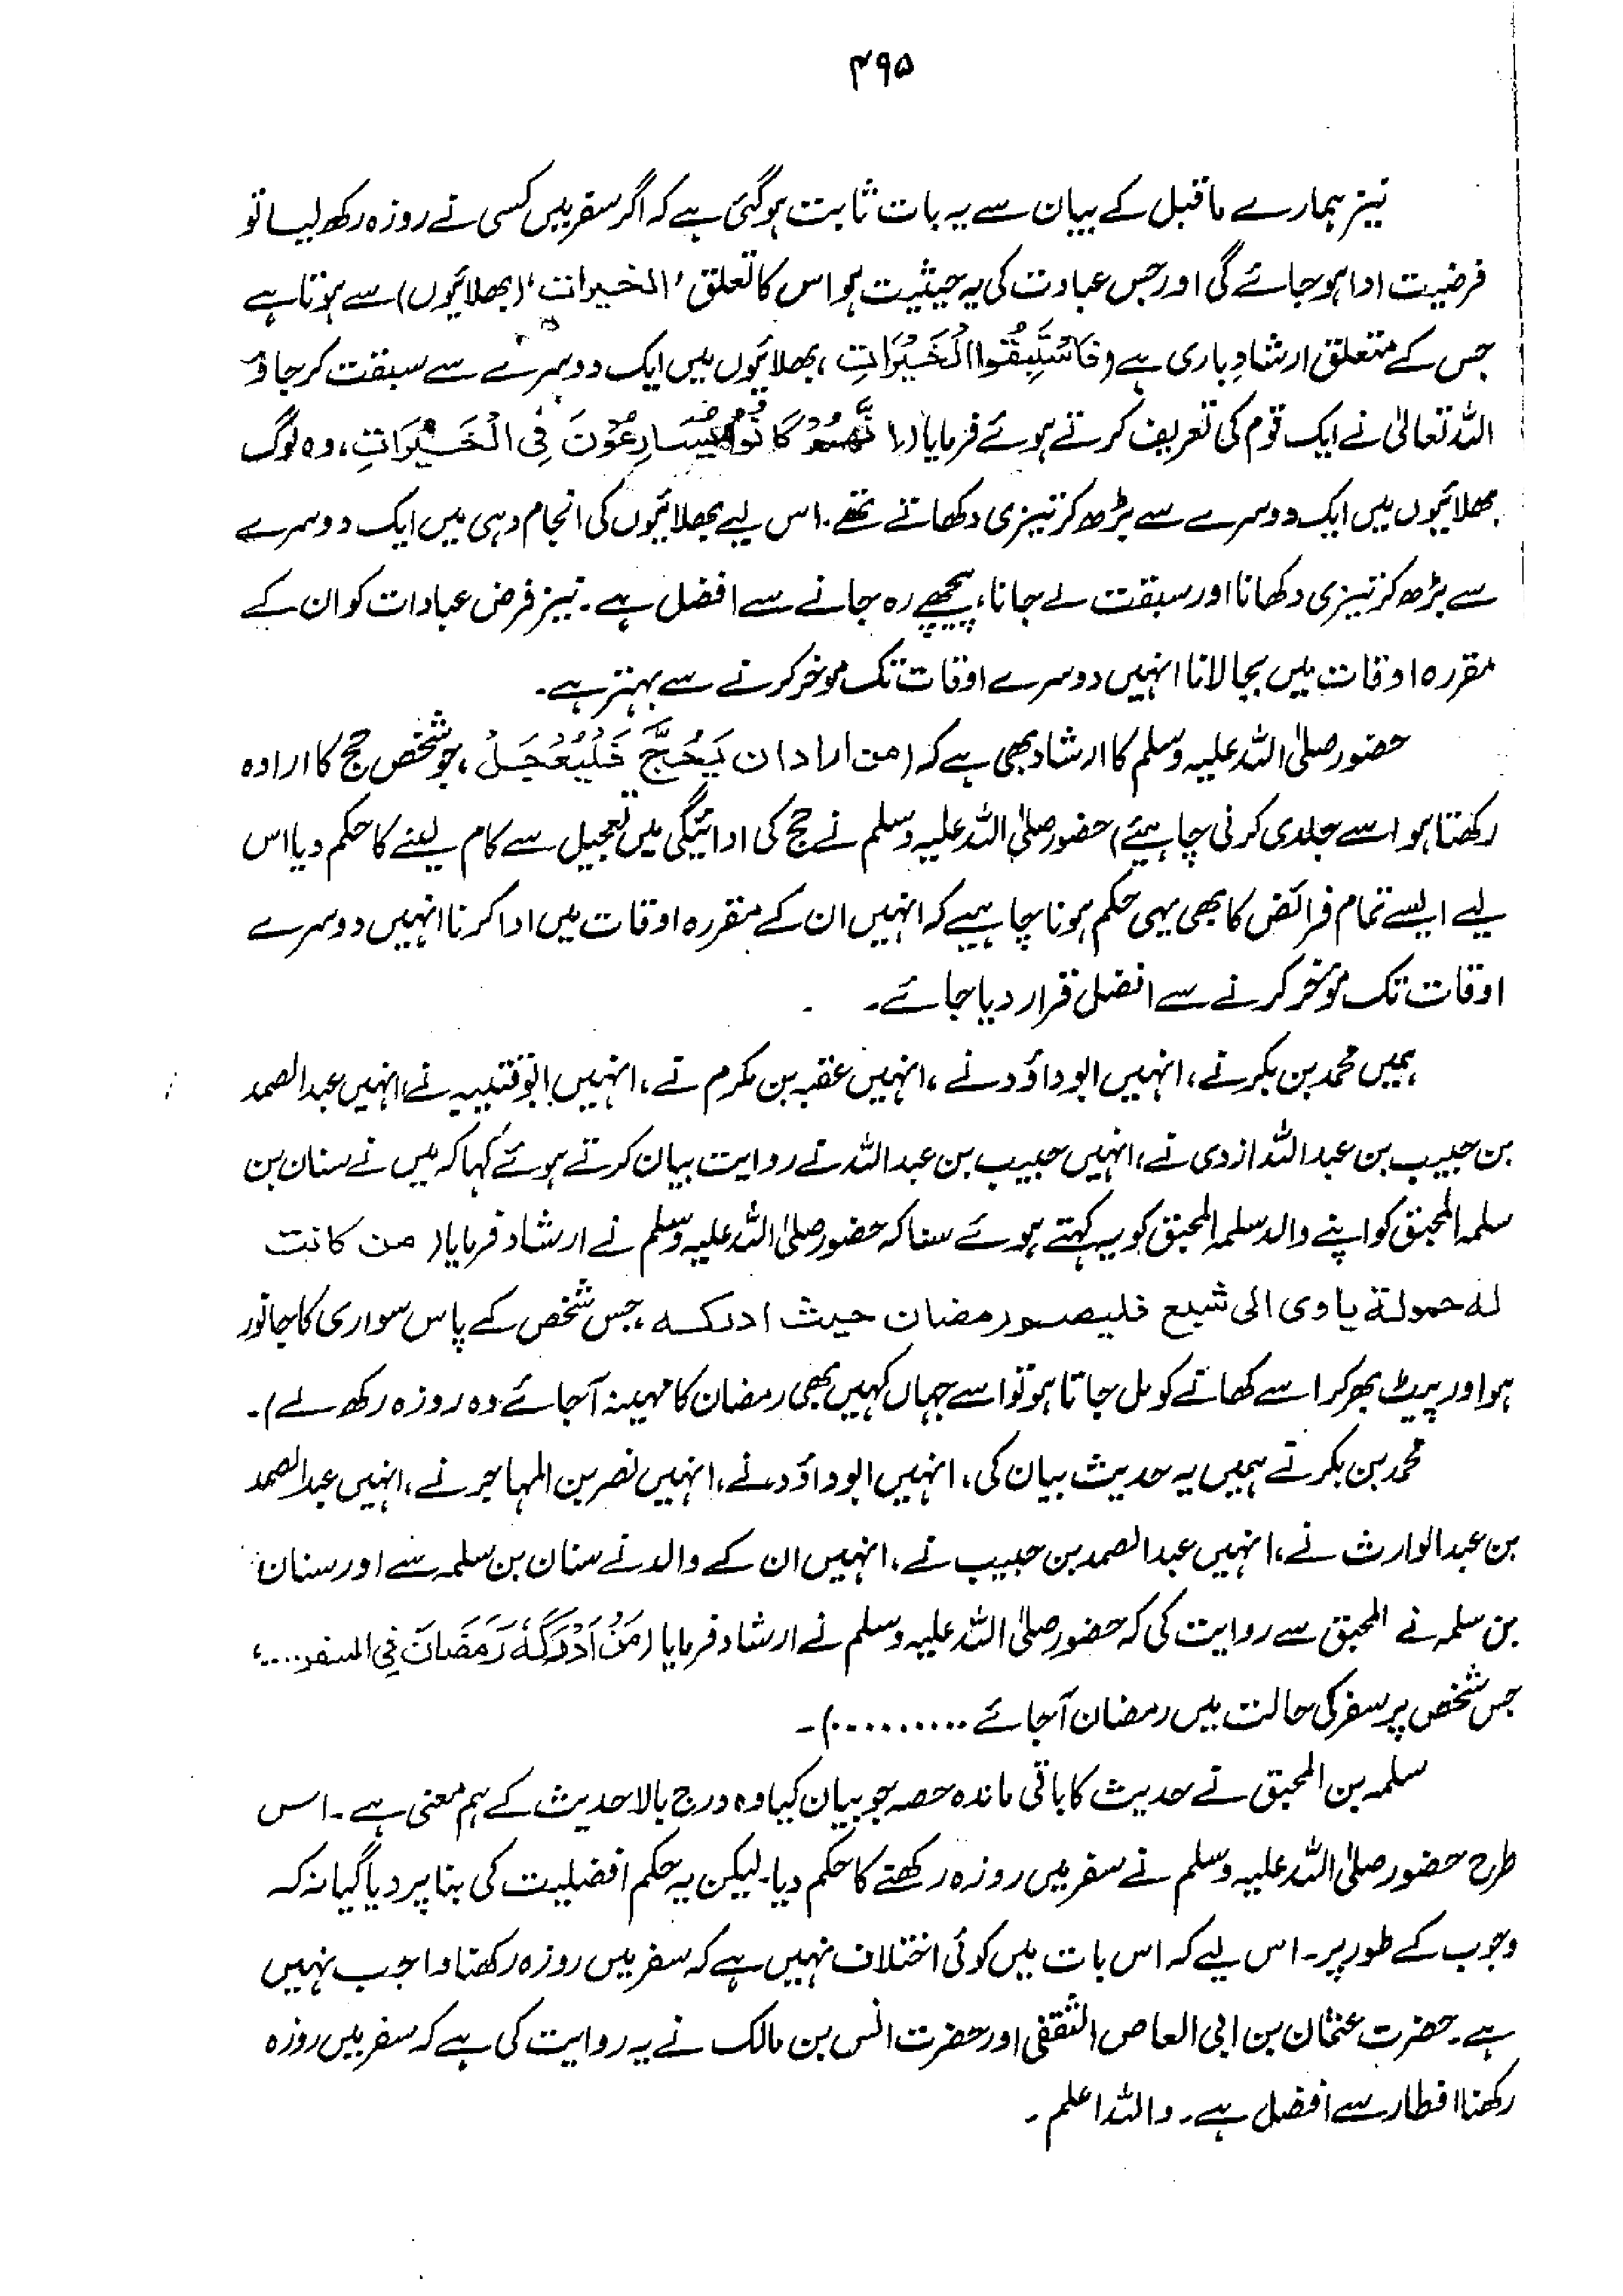 ۴۹۵
نیز ہمارے ماقبل کے بیان سے یہ بات ثابت ہوگئی ہے کہ اگر سفر میں کسی نے روزہ رکھ لیا تو
فرضیت ادا ہو جائے گی اور جس عبادت کی یہ حیثیت ہو اس کا تعلق ’الخیرات‘ (بھلائیوں) سے ہوتا ہے
جس کے متعلق ارشادِ باری ہے (فَاسْتَبِقُوا الْخَيْرَاتِ، بھلائیوں میں ایک دوسرے سے سبقت کر جاؤ
اللہ تعالیٰ نے ایک قوم کی تعریف کرتے ہوئے فرمایا (اِنَّهُمْ كَانُوْا يُسَارِعُوْنَ فِى الْخَيْرَاتِ، وہ لوگ
بھلائیوں میں ایک دوسرے سے بڑھ کر تیزی دکھاتے تھے۔ اس لیے بھلائیوں کی انجام دہی میں ایک دوسرے
سے بڑھ کر تیزی دکھانا اور سبقت لے جانا، پیچھے رہ جانے سے افضل ہے۔ نیز فرض عبادات کو ان کے
مقررہ اوقات میں بجا لانا انہیں دوسرے اوقات تک موخر کرنے سے بہتر ہے۔
حضور صلی اللہ علیہ وسلم کا ارشاد بھی ہے کہ (من اراد ان يَحُجَّ فَلْيُعَجِّلْ، جو شخص حج کا ارادہ
رکھتا ہو اسے جلدی کرنی چاہیئے) حضور صلی اللہ علیہ وسلم نے حج کی ادائیگی میں تعجیل سے کام لینے کا حکم دیا اس
لیے ایسے تمام فرائض کا بھی یہی حکم ہونا چاہیے کہ انہیں ان کے مقررہ اوقات میں ادا کرنا انہیں دوسرے
اوقات تک مؤخر کرنے سے افضل قرار دیا جائے۔
ہمیں محمد بن بکر نے، انہیں ابو داؤد نے، انہیں عقبہ بن مکرم نے، انہیں ابو قتیبہ نے، انہیں عبد الصمد
بن حبیب بن عبد اللہ ازدی نے، انہیں حبیب بن عبد اللہ نے روایت بیان کرتے ہوئے کہا کہ میں نے سنان بن
سلمہ المحبق کو اپنے والد سلمہ المحبق کو یہ کہتے ہوئے سنا کہ حضور صلی اللہ علیہ وسلم نے ارشاد فرمایا (من كانت
له حمولة ياوى الى شبع فليصم رمضان حيث ادركه، جس شخص کے پاس سواری کا جانور
ہو اور پیٹ بھر کر اسے کھانے کو مل جاتا ہو تو اسے جہاں کہیں بھی رمضان کا مہینہ آجائے وہ روزہ رکھ لے)۔
محمد بن بکر نے ہمیں یہ حدیث بیان کی، انہیں ابو داؤد نے، انہیں نصر بن المہاجر نے، انہیں عبد الصمد
بن عبد الوارث نے، انہیں عبد الصمد بن حبیب نے، انہیں ان کے والد نے سنان بن سلمہ سے اور سنان
بن سلمہ نے المحبق سے روایت کی کہ حضور صلی اللہ علیہ وسلم نے ارشاد فرمایا (مَنْ اَدْرَكَهٗ رَمَضَانَ فِى السفر....،
جس شخص پر سفر کی حالت میں رمضان آجائے ..........)۔
سلمہ بن المحبق نے حدیث کا باقی ماندہ حصہ جو بیان کیا وہ درج بالا حدیث کے ہم معنی ہے۔ اس
طرح حضور صلی اللہ علیہ وسلم نے سفر میں روزہ رکھنے کا حکم دیا۔ لیکن یہ حکم افضلیت کی بنا پر دیا گیا نہ کہ
وجوب کے طور پر۔ اس لیے کہ اس بات میں کوئی اختلاف نہیں ہے کہ سفر میں روزہ رکھنا واجب نہیں
ہے۔ حضرت عثمان بن ابی العاص الثقفی اور حضرت انس بن مالک نے یہ روایت کی ہے کہ سفر میں روزہ
رکھنا افطار سے افضل ہے۔ واللہ اعلم۔